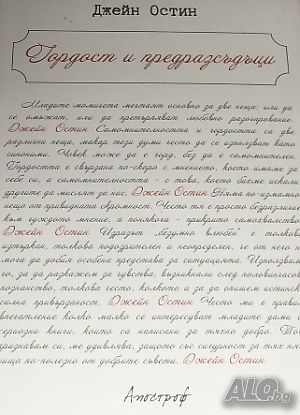 Джейн Остин
Гордост и предразсъдъци
Младите момичета мечтаят основно за две неща: или да
се омъжат, или да претърпяват любовно разочарование.
Джейн Остин Самомнителността и гордостта са две
различни неща, макар тези думи често да се използват като
синоними. Човек може да е горд, без да е самомнителен.
Гордостта е свързана по-скоро с мнението, което имаме за
себе си, а самомнителността - с това, което бихме искали
другите да мислят за нас. Джейн Остин Няма по-измамно
нещо от привидната скромност. Често тя е просто безразличие
към чуждото мнение, а понякога - прикрито самохвалство
Джейн Остин Изразът „безумно влюбен" е толкова
изтъркан, толкова подозрителен и неопределен, че от него не
мога да добия особена представа за ситуацията. Използват
го, за да разкажем за чувства, възникнали след половинчасово
познанство, толкова често, колкото и за да опишем истинска
силна привързаност. Джейн Остин Често ми е правило
впечатление колко малко се интересуват младите дами от
сериозни книги, които са написани за тяхно добро. Това
признавам, ме удивлява, защото със сигурност за тях няма
нищо по-полезно от добрите съвети. Джейн Остин
Апостроф
ALO.bg